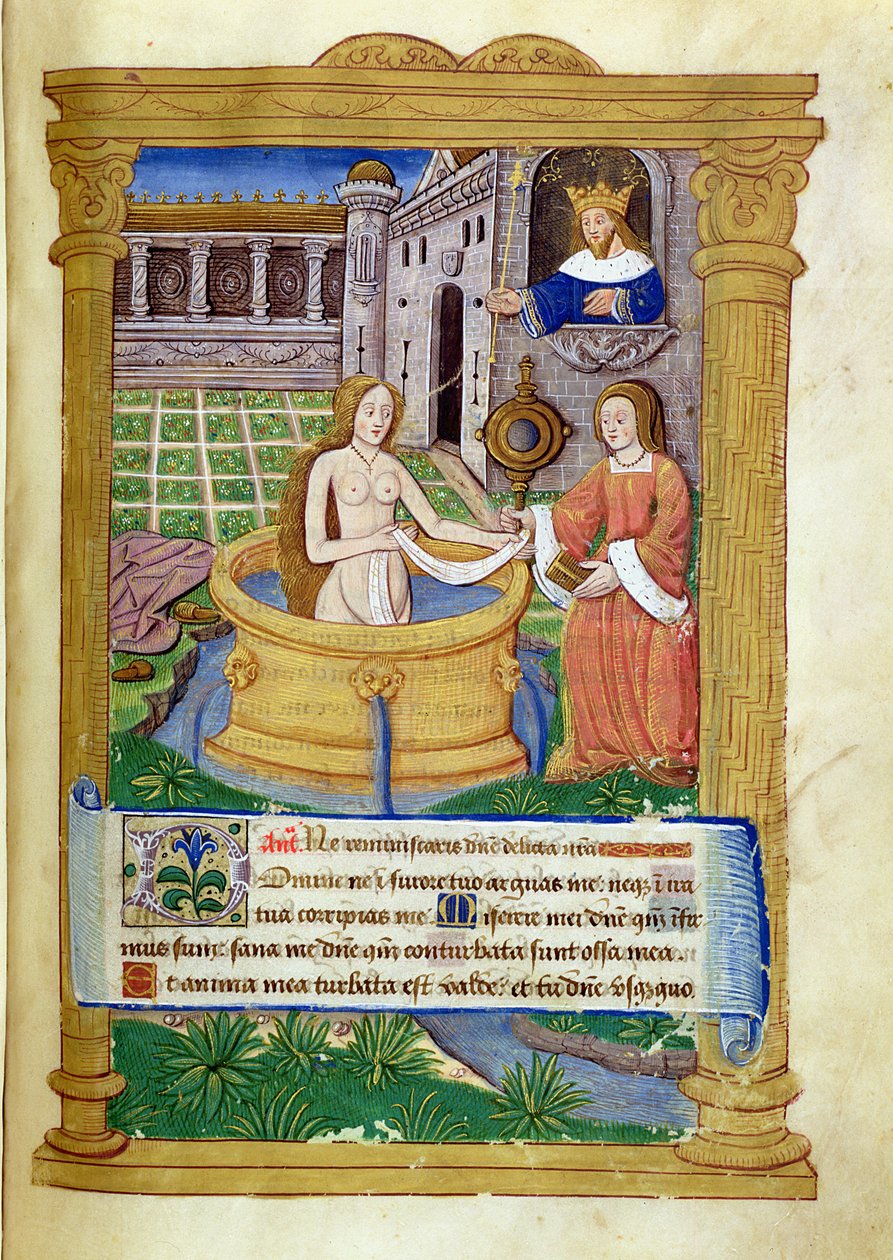 Ant. Ne reminiscaris dne delicta nra
Domine ne i furore tuo arguas me: neqz i ira
tua corripias me. Miserere mei dne qm ifir
mus sum: sana me dne qm conturbata sunt ossa mea.
Et anima mea turbata est valde: et tu dne vsqzquo.